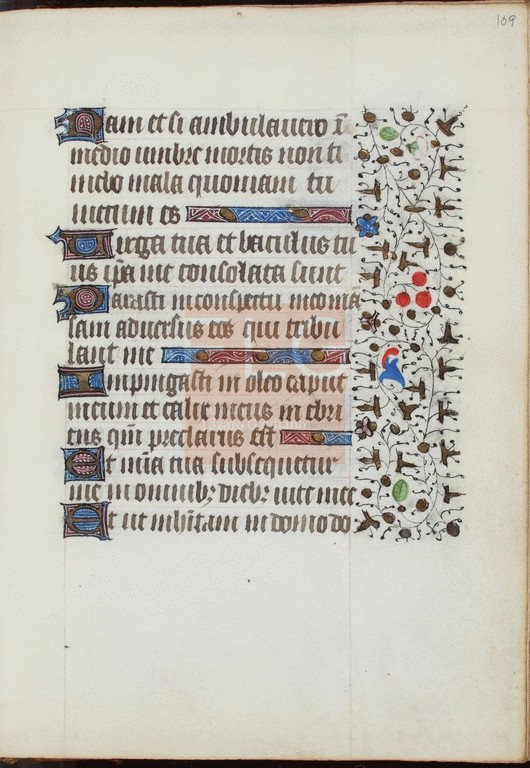 109
Nam et si ambulavero ī
medio umbre mortis non ti
mebo mala quoniam tu
mecum es
Uirga tua et baculus tu
us ipa me consolata sunt
Parasti in conspectu meo ma
sam adversus eos qui tribu
lant me
Inpingasti in oleo caput
meum et calix meus in ebri
ens qm̄ preclarus est
Et mīa tua subsequetur
me in omnibz diebz vite mee
Et ut inhītam in domo do